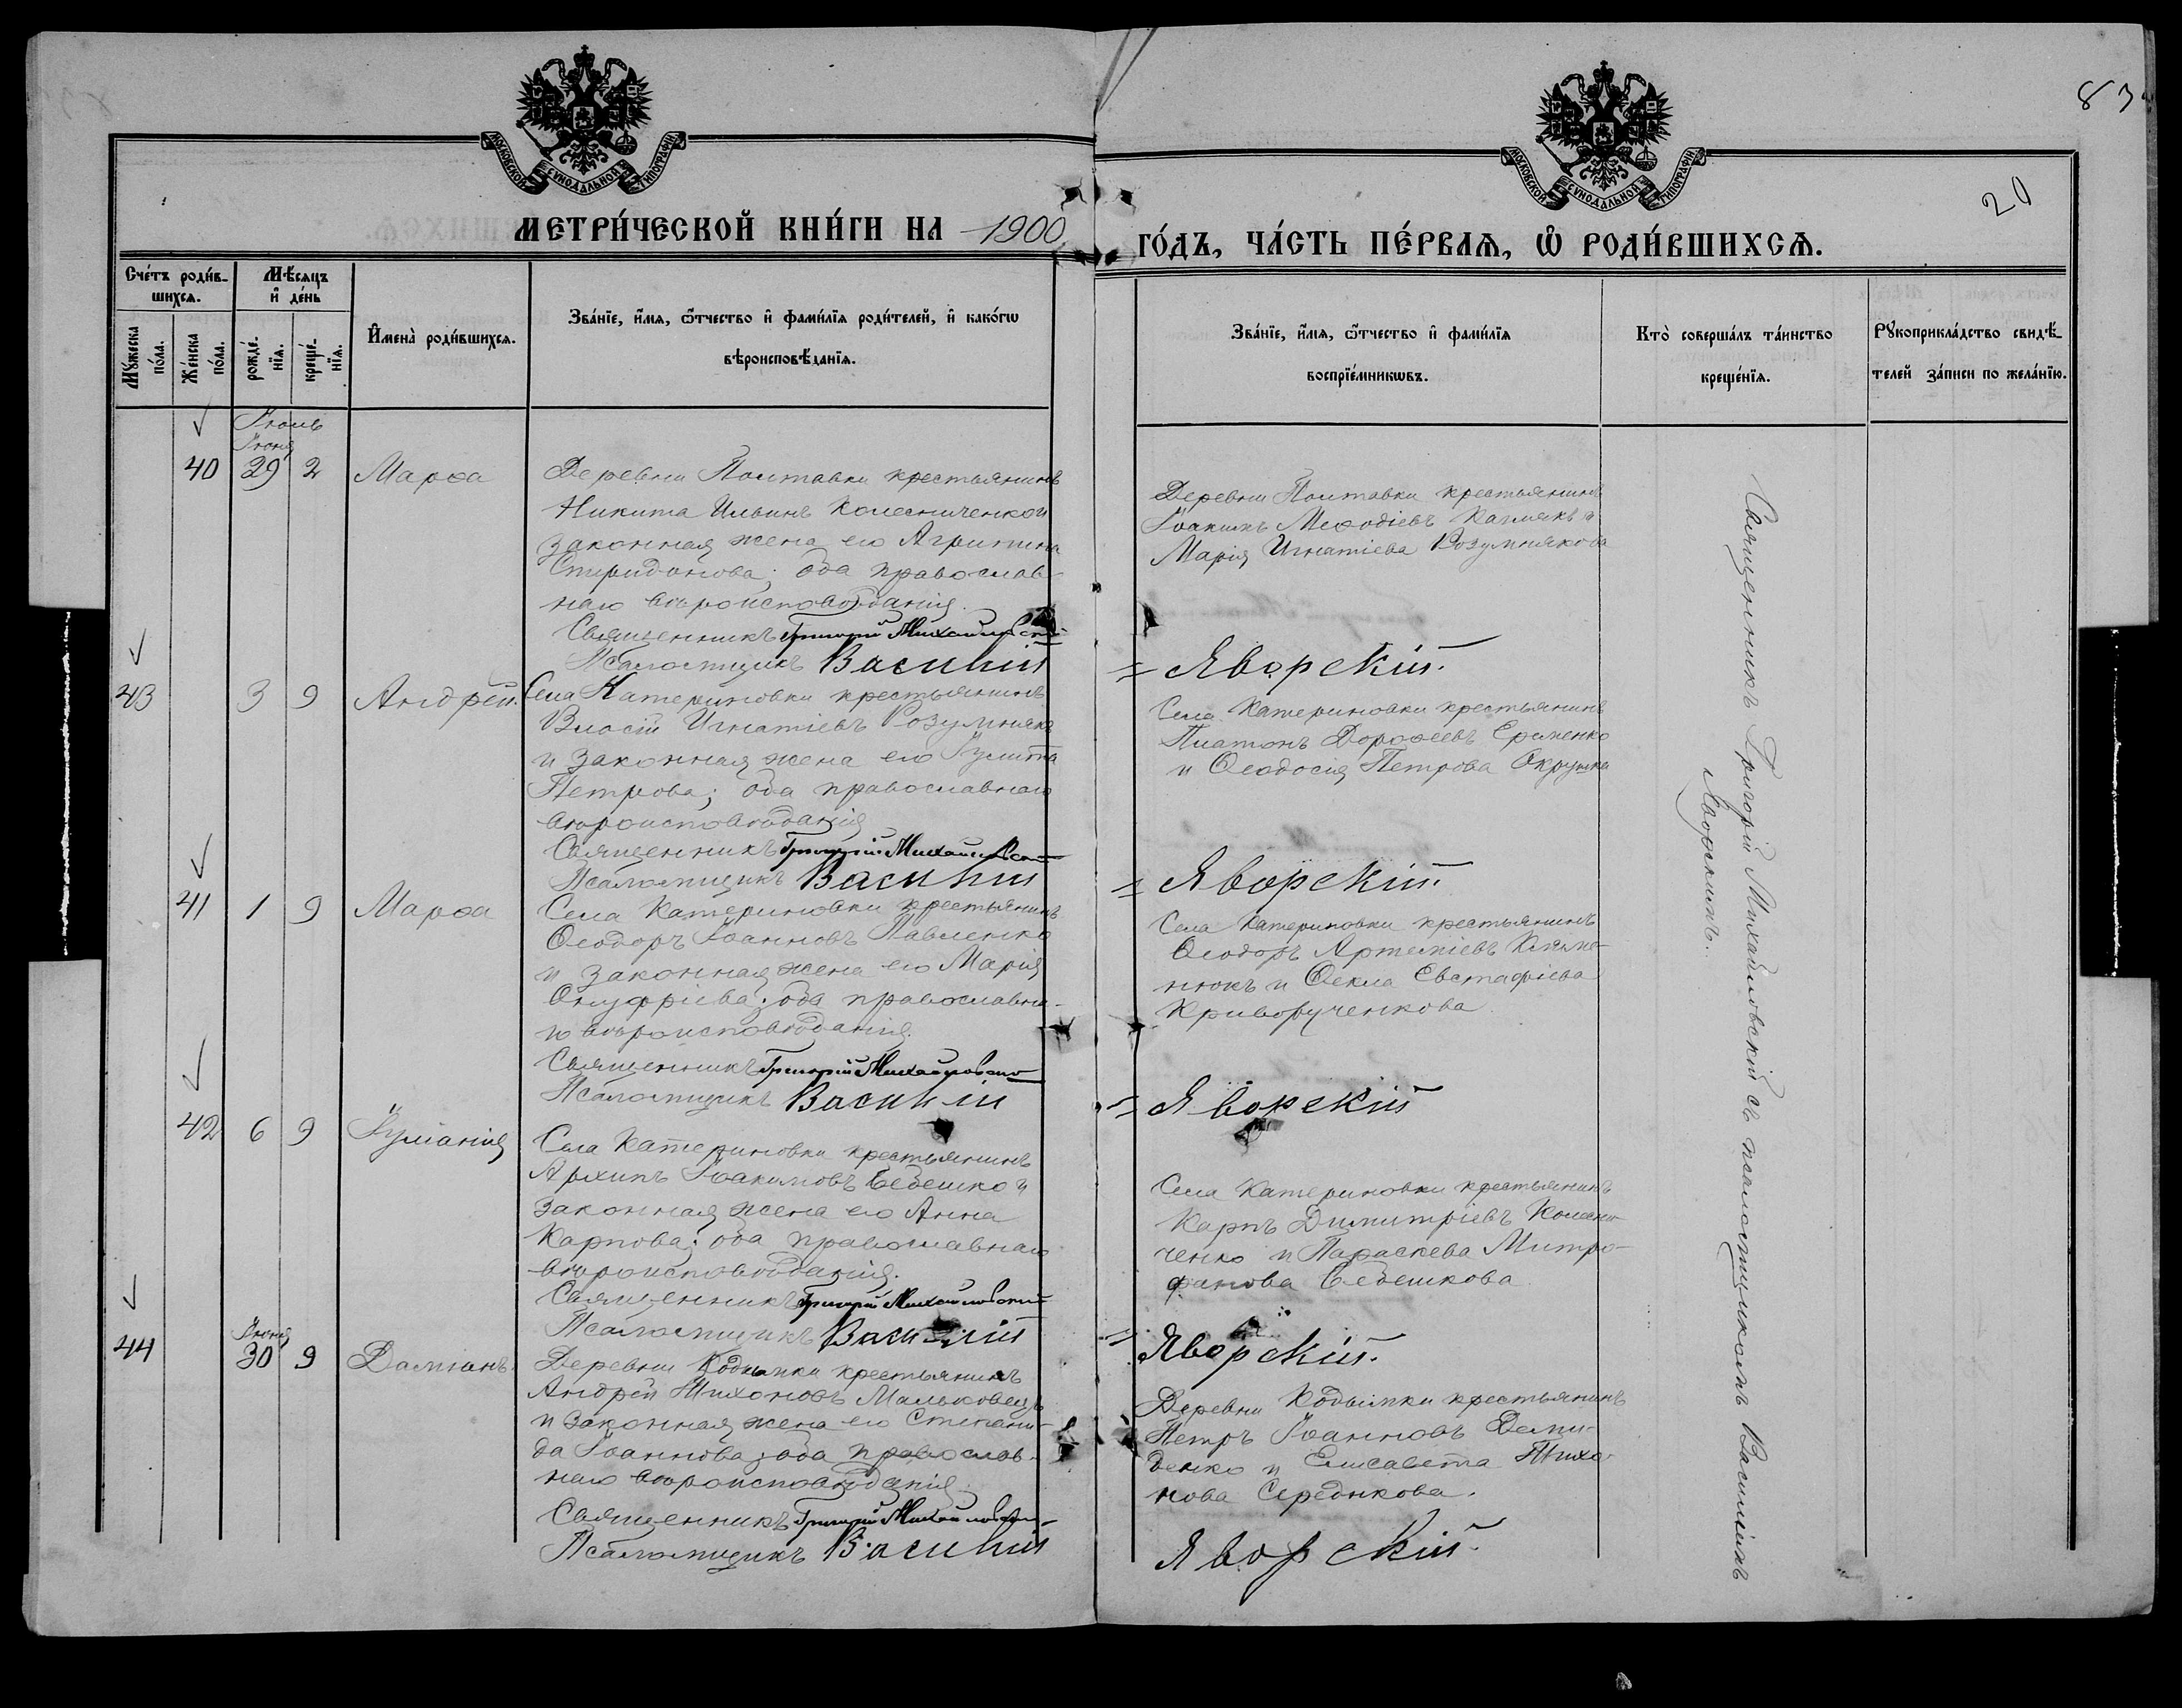 83
20
МОСКОВСКОЙ СѴНОДАЛЬНОЙ ТИПОГРАФІИ
МОСКОВСКОЙ СѴНОДАЛЬНОЙ ТИПОГРАФІИ
МЕТРИ́ЧЕСКОЙ КНИ́ГИ НА 1900
ГО́ДЪ, ЧА́СТЬ ПЕ́РВАѦ, Ѡ РОДИ́ВШИХСѦ.
Сче́тъ роди́в-
шихсѧ.
Мꙋ́жеска по́ла.
Же́нска по́ла.
Мѣ́сѧцъ
и҆ де́нь
рожде́-
нїѧ.
креще́-
нїѧ.
И҆мена̀ роди́вшихсѧ.
Зва́нїе, и҆́мѧ, ѻ҆́тчество и҆ фами́лїѧ роди́телей, и҆ како́гѡ
вѣроисповѣ́данїѧ.
Зва́нїе, и҆́мѧ, ѻ҆́тчество и҆ фами́лїѧ
воспрїе́мникѡвъ.
Кто̀ соверша́лъ та́инство
креще́нїѧ.
Рꙋкоприкла́дство свидѣ́-
телей за́писи по жела́нїю.
Іюль
Іюня
40 29 2 Марѳа
Деревни Полтавки крестьянинъ
Никита Ильинъ Колесниченко и
законная жена его Агрипина
Спиридонова; оба православ-
наго вѣроисповѣданія.
Священникъ Григорій Михайловскій
Псаломщикъ Василій
Деревни Полтавки крестьянинъ
Іоакимъ Меѳодіевъ Калмыкъ и
Марія Игнатіева Розумнякова
= Яворскій.
43 3 9 Андрей.
Села Катериновки крестьянинъ
Власій Игнатіевъ Розумнякъ
и законная жена его Іулитта
Петрова; оба православнаго
вѣроисповѣданія
Священникъ Григорій Михайловскій
Псаломщикъ Василій
Села Катериновки крестьянинъ
Платонъ Дороѳеевъ Еременко
и Ѳеодосія Петрова
= Яворскій.
41 1 9 Марѳа
Села Катериновки крестьянинъ
Ѳеодоръ Іоанновъ Павленко
и законная жена его Марія
Онуфріева; оба православна-
го вѣроисповѣданія.
Священникъ Григорій Михайловскій
Псаломщикъ Василій
Села Катериновки крестьянинъ
Ѳеодоръ Артеміевъ Климе-
нюкъ и Ѳекла Евстафіева
Криворученкова
= Яворскій
42 6 9 Іуліанія
Села Катериновки крестьянинъ
Архипъ Іоакимовъ Бебешко и
законная жена его Анна
Карпова; оба православнаго
вѣроисповѣданія.
Священникъ Григорій Михайловскій
Псаломщикъ Василій
Села Катериновки крестьянинъ
Карпъ Димитріевъ Колесни-
ченко и Параскева Митро-
фанова Бебешкова
= Яворскій.
Іюня
44 30 9 Даміанъ.
Деревни Кодымки крестьянинъ
Андрей Тихоновъ Мальковецъ
и законная жена его Степани-
да Іоаннова; оба православ-
наго вѣроисповѣданія.
Священникъ Григорій Михайловскій
Псаломщикъ Василій
Деревни Кодымки крестьянинъ
Петръ Іоанновъ Деми-
денко и Елисавета Тихо-
нова Середюкова.
Яворскій.
Священникъ Григорій Михайловскій съ псаломщикомъ Василіемъ
Яворскимъ.